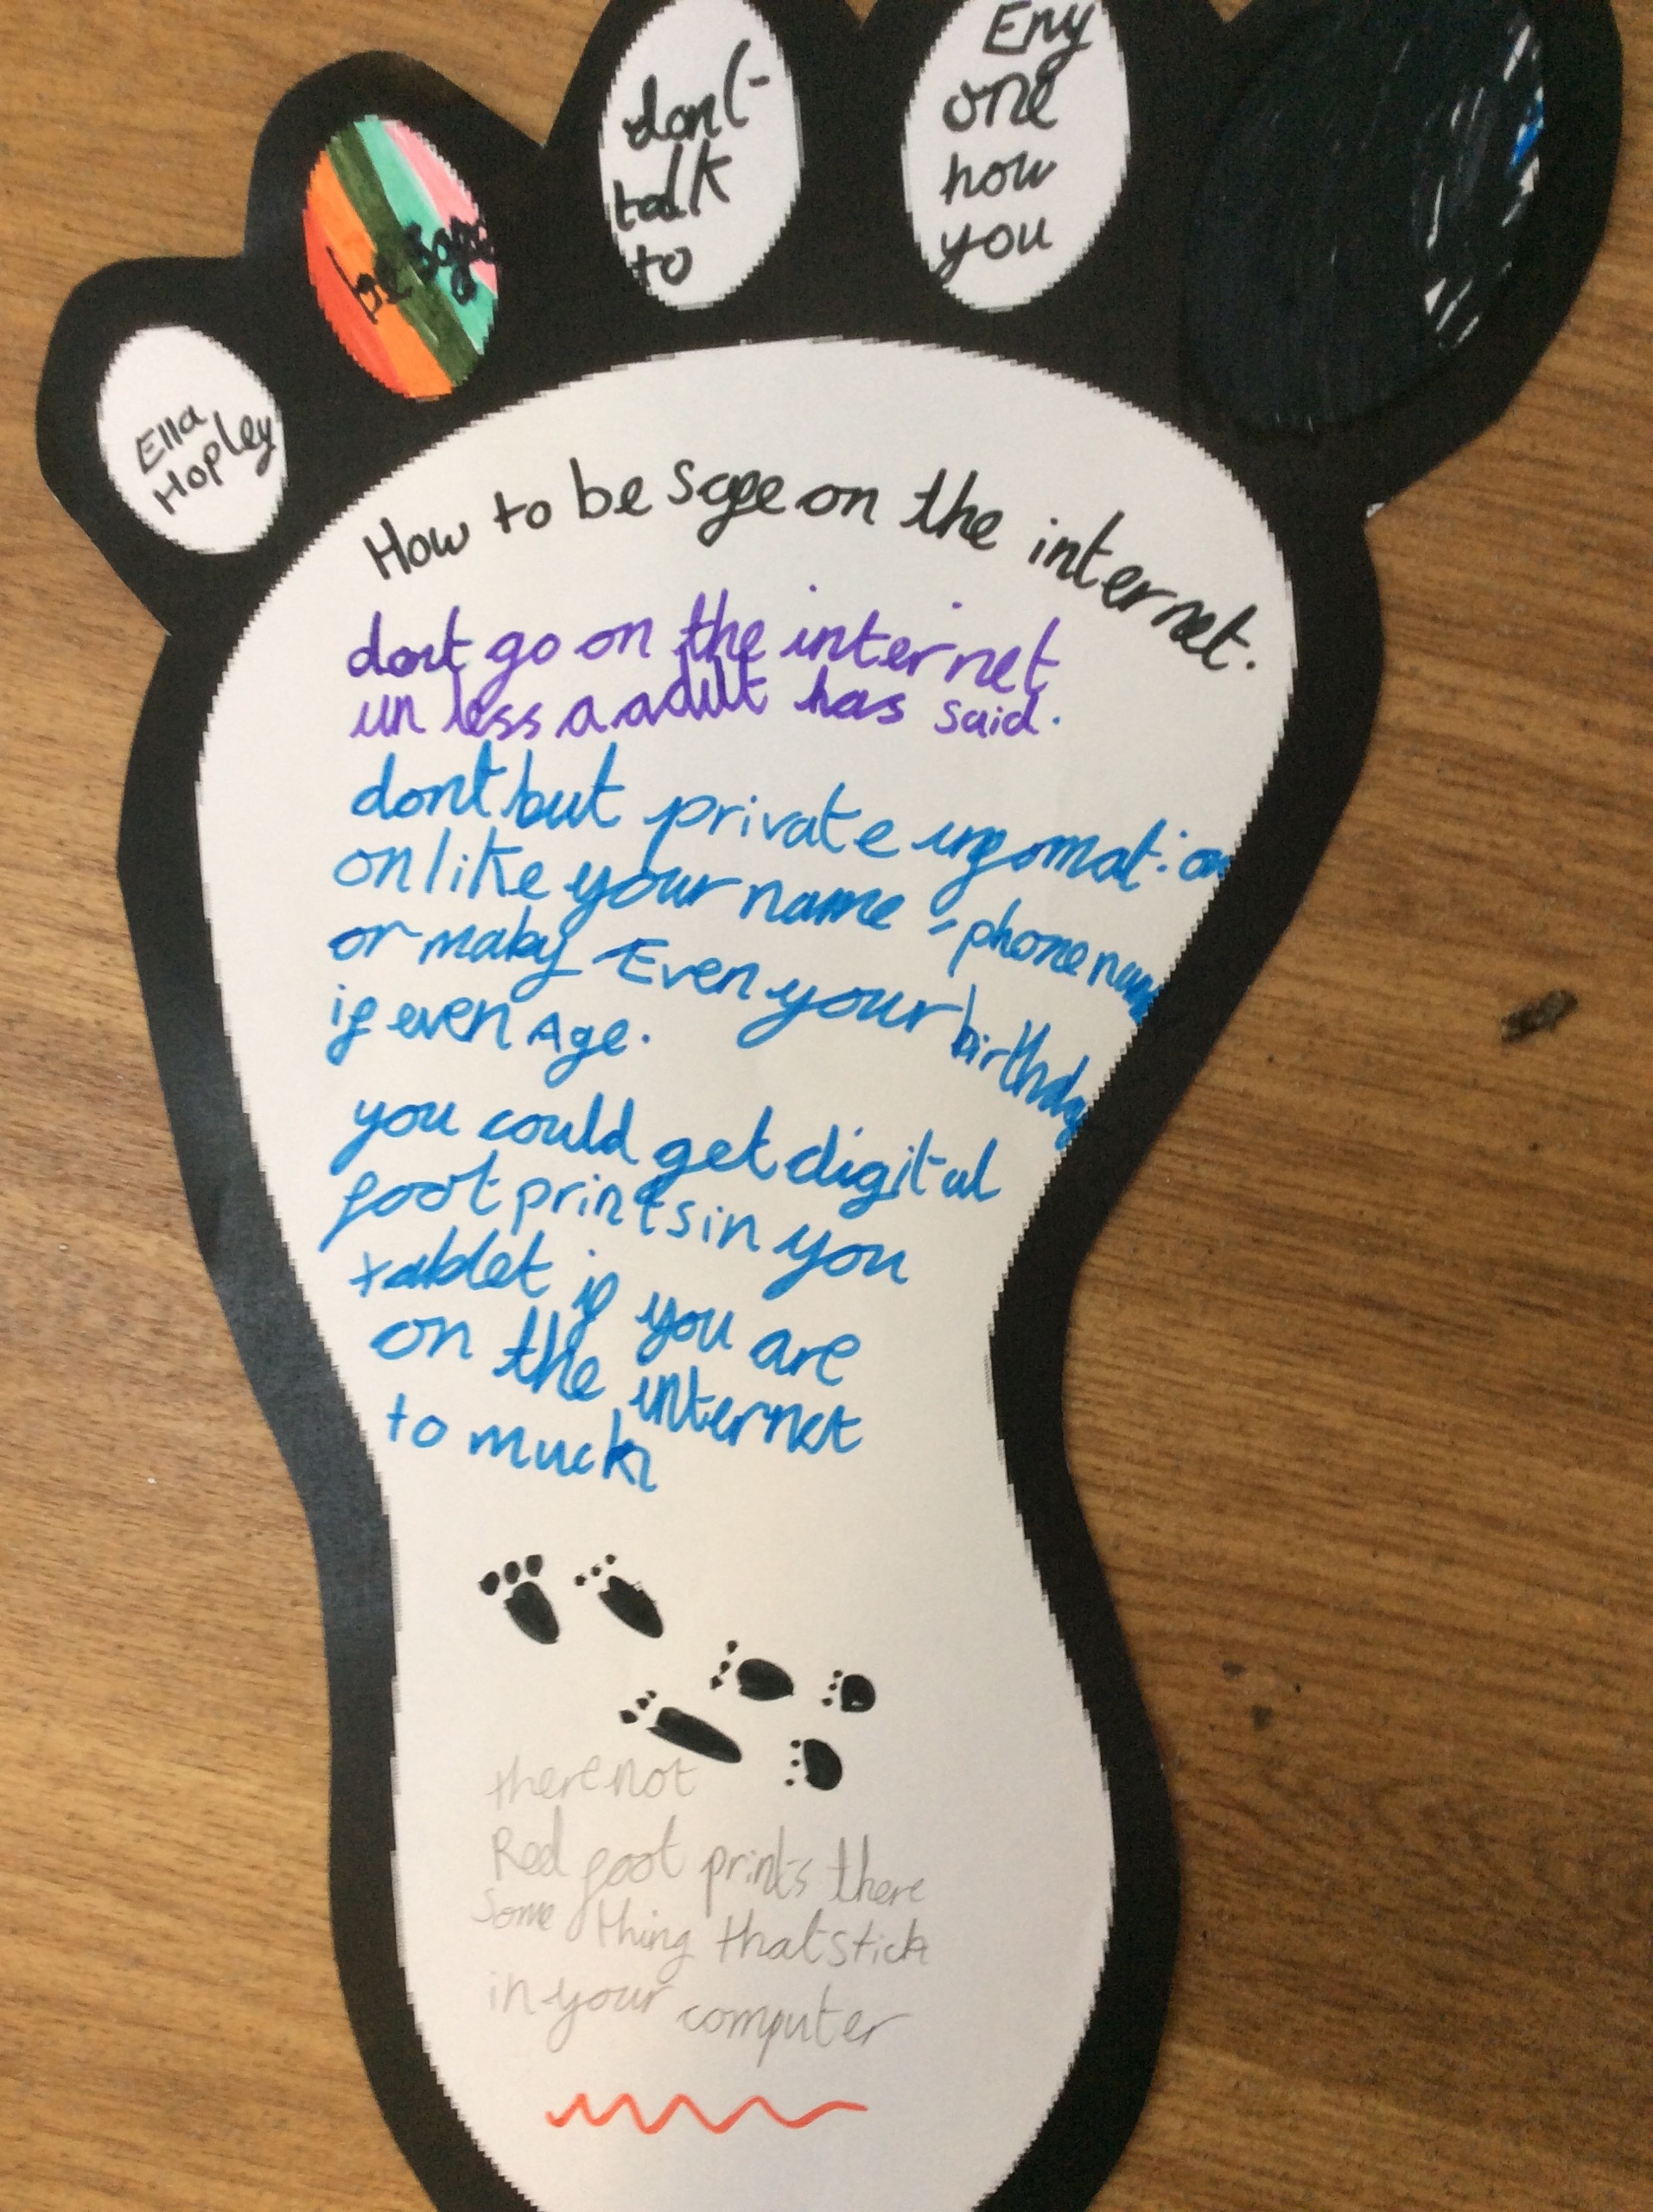 Ella
Hopley
be safe
dont
talk
to
Eny
one
how
you
How to be safe on the internet.
dont go on the internet
un less a adult has said.
dont but private infomation
on like your name phone num
or maby Even your birthday
if even Age.
you could get digital
foot prints in you
tablet if you are
on the internet
to much
there not
Reel foot prints there
Some thing that stick
in your computer